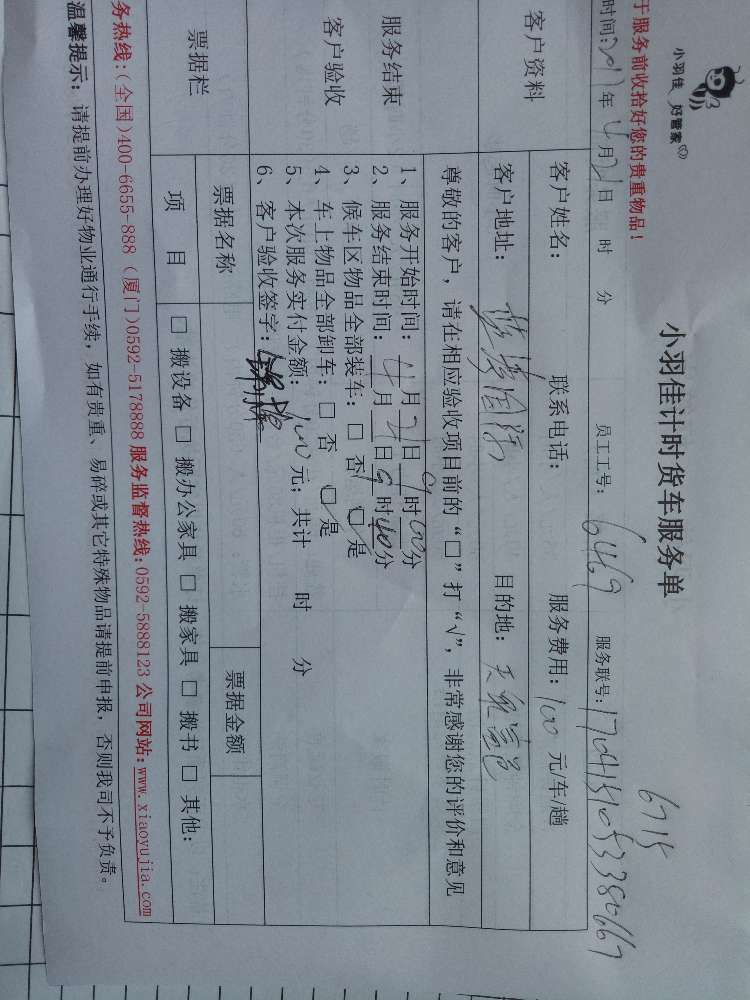 小羽佳 好管家
小羽佳计时货车服务单
于服务前收拾好您的贵重物品！
6715
时间:2017年4月21日 时 分 员工工号: 6469 服务联号:
客户资料
客户姓名: 联系电话: 服务费用: 100 元/车/趟
客户地址: 目的地:
服务结束
客户验收
尊敬的客户，请在相应验收项目前的“□”打“√”，非常感谢您的评价和意见
1、服务开始时间: 4月21日9时00分
2、服务结束时间: 月 日9时40分
3、候车区物品全部装车: □ 否 ☑是
4、车上物品全部卸车: □ 否 ☑是
5、本次服务实付金额: 100元; 共计 时 分
6、客户验收签字:
票据栏
票据名称 票据金额
项 目 □ 搬设备 □ 搬办公家具 □ 搬家具 □ 搬书 □ 其他:
务热线:(全国)400-6655-888 (厦门)0592-5178888 服务监督热线:0592-5888123 公司网站:www.xiaoyujia.com
温馨提示: 请提前办理好物业通行手续, 如有贵重、易碎或其它特殊物品请提前申报, 否则我司不予负责。